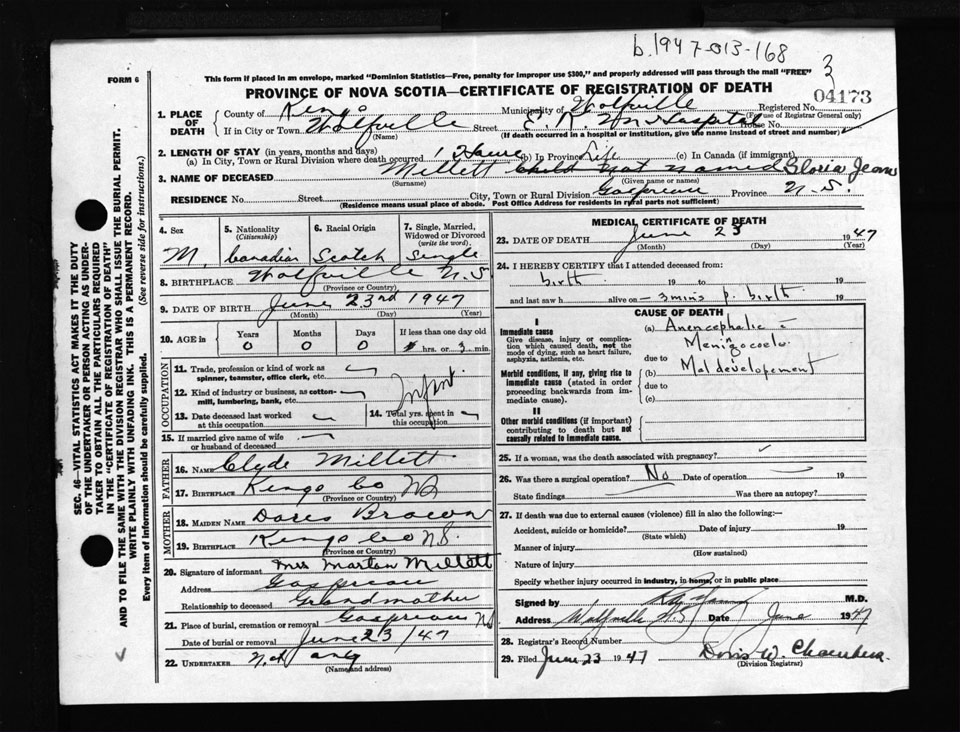 b.1947-013-168
3
FORM 6
This form if placed in an envelope, marked "Dominion Statistics—Free, penalty for improper use $300," and properly addressed will pass through the mail "FREE"
PROVINCE OF NOVA SCOTIA—CERTIFICATE OF REGISTRATION OF DEATH
04173
1. PLACE OF DEATH
County of Kings Municipality of Wolfville Registered No.
(For use of Registrar General only)
If in City or Town Wolfville Street E. K. M Hospital House No.
(Name) (If death occurred in a hospital or institution, give the name instead of street and number)
2. LENGTH OF STAY (in years, months and days)
(a) In City, Town or Rural Division where death occurred 1 Hour (b) In Province Life (c) In Canada (if immigrant)
3. NAME OF DECEASED Millett Child not named Gloria Jean
(Surname) (Given name or names)
RESIDENCE No. Street City, Town or Rural Division Gaspereau Province N.S.
(Residence means usual place of abode. Post Office Address for residents in rural parts not sufficient)
4. Sex M.
5. Nationality (Citizenship) Canadian
6. Racial Origin Scotch
7. Single, Married, Widowed or Divorced (write the word) Single
8. BIRTHPLACE Wolfville N.S
(Province or Country)
9. DATE OF BIRTH June 23rd 1947
(Month) (Day) (Year)
10. AGE in Years Months Days If less than one day old
0 0 0 hrs. or 3 min.
OCCUPATION
11. Trade, profession or kind of work as spinner, teamster, office clerk, etc.
12. Kind of industry or business, as cotton-mill, lumbering, bank, etc.
Infant
13. Date deceased last worked at this occupation
14. Total yrs. spent in this occupation
15. If married give name of wife or husband of deceased
FATHER
16. NAME Clyde Millett
17. BIRTHPLACE Kings Co NS
(Province or Country)
MOTHER
18. MAIDEN NAME Doris Brown
19. BIRTHPLACE Kings Co NS.
(Province or Country)
20. Signature of informant Mrs Marton Millett
Address Gaspereau
Relationship to deceased Grandmother
21. Place of burial, cremation or removal Gaspereau NS
Date of burial or removal June 23/47
22. UNDERTAKER Not any
(Name and address)
MEDICAL CERTIFICATE OF DEATH
23. DATE OF DEATH June 23 1947
(Month) (Day) (Year)
24. I HEREBY CERTIFY that I attended deceased from:
birth 19 to 19
and last saw h alive on — 3 mins p. birth 19
CAUSE OF DEATH
I
Immediate cause
Give disease, injury or complication which caused death, not the mode of dying, such as heart failure, asphyxia, asthenia, etc.
(a) Anencephalic c̄
Meningocoele
due to
Morbid conditions, if any, giving rise to immediate cause (stated in order proceeding backwards from immediate cause).
(b) Maldevelopement
due to
(c)
II
Other morbid conditions (if important) contributing to death but not causally related to immediate cause.
25. If a woman, was the death associated with pregnancy?
26. Was there a surgical operation? No Date of operation 19
State findings Was there an autopsy?
27. If death was due to external causes (violence) fill in also the following:—
Accident, suicide or homicide? Date of injury 19
(State which)
Manner of injury
(How sustained)
Nature of injury
Specify whether injury occurred in industry, in home, or in public place
Signed by M.D.
Address Wolfville N.S Date June 1947
28. Registrar's Record Number
29. Filed June 23 1947 Doris W.
(Division Registrar)
SEC. 46—VITAL STATISTICS ACT MAKES IT THE DUTY
OF THE UNDERTAKER OR PERSON ACTING AS UNDER-
TAKER TO OBTAIN ALL THE PARTICULARS REQUIRED
IN THE "CERTIFICATE OF REGISTRATION OF DEATH"
AND TO FILE THE SAME WITH THE DIVISION REGISTRAR WHO SHALL ISSUE THE BURIAL PERMIT.
WRITE PLAINLY WITH UNFADING INK. THIS IS A PERMANENT RECORD.
Every item of information should be carefully supplied. (See reverse side for instructions.)